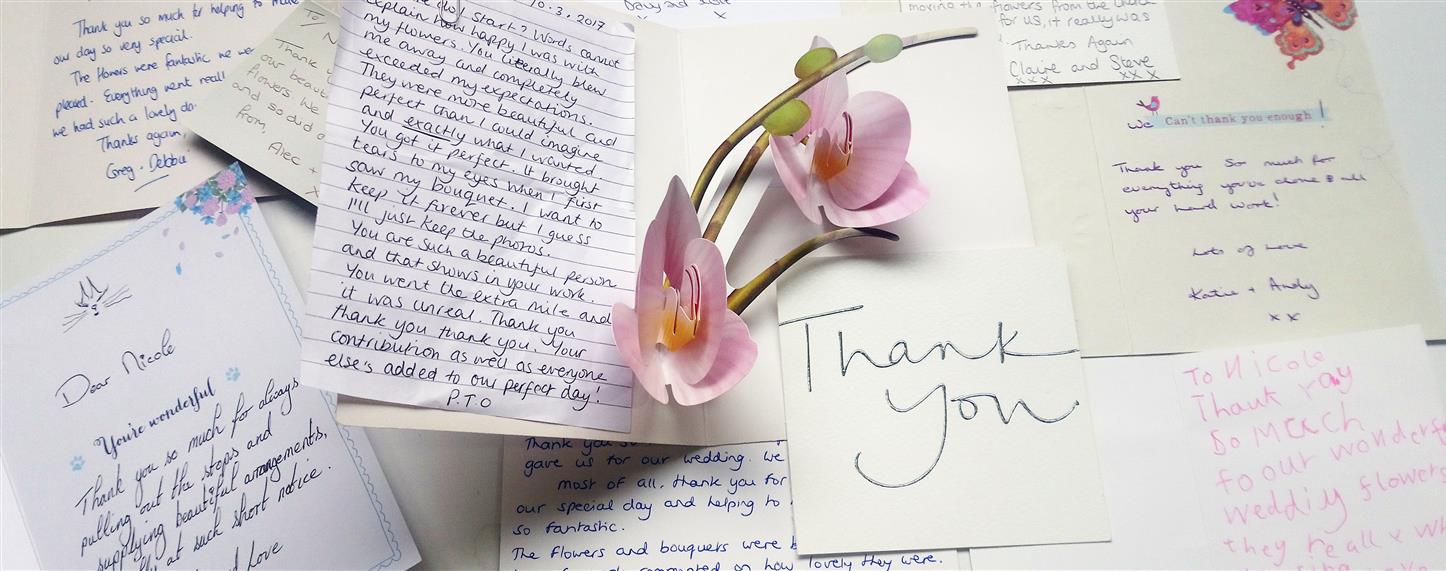 Thank you so much for helping to make
our day so very special.
The flowers were fantastic we were
pleased. Everything went reall
we had such a lovely da
Thanks again,
Greg + Debbie
To
N
Thank
our beaut
flowers. We
and so did o
from,
Alec +
x
10.3.2017
start? Words cannot
explain how happy I was with
my flowers. You literally blew
me away and completely
exceeded my expectations.
They were more beautiful and
perfect than I could imagine
and exactly what I wanted
You got it perfect. It brought
tears to my eyes when I first
saw my bouquet. I want to
keep it forever but I guess
I'll just keep the photos.
You are such a beautiful person
and that shows in your work.
You went the extra mile and
it was unreal. Thank you
thank you thank you. Your
contribution as well as everyone
else's added to our perfect day!
P.T.O
moving the flowers from the church
for us, it really was
Thanks Again
Claire and Steve
xx x x
We Can't thank you enough!
Thank you so much for
everything you've done & all
your hard work!
Lots of love
Katie + Andy
x x
Dear Nicole
You're wonderful
Thank you so much for always
pulling out the stops and
supplying beautiful arrangements,
at such short notice.
love
Thank you
gave us for our wedding. We
most of all, thank you for
our special day and helping to
so fantastic.
The flowers and bouquets were b
commented on how lovely they were.
Thank
You
To Nicole
Thank yay
So Much
fo our wonderf
weddiy flowers
they reall x wh